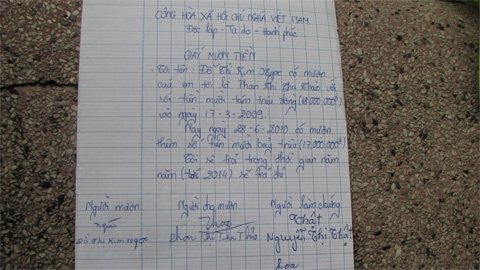 CỘNG HÒA XÃ HỘI CHỦ NGHĨA VIỆT NAM
Độc lập - Tự do - Hạnh phúc
GIẤY MƯỢN TIỀN
Tôi tên: Đỗ Thị Kim Ngọc có mượn
của em tôi là Phan Thị Thu Thảo với
số tiền mười tám triệu đồng (18.000.000đ)
vào ngày 17-3-2009.
Nay ngày 28-6-2010 có mượn
thêm số tiền mười bảy triệu (17.000.000đ)
Tôi sẽ trả trong thời gian năm
năm (2014) sẽ trả đủ
Người mượn Người cho mượn Người làm chứng
Ngọc Thảo Thật
Đỗ Thị Kim Ngọc Phan Thị Thu Thảo Nguyễn Thị Thật
hoa